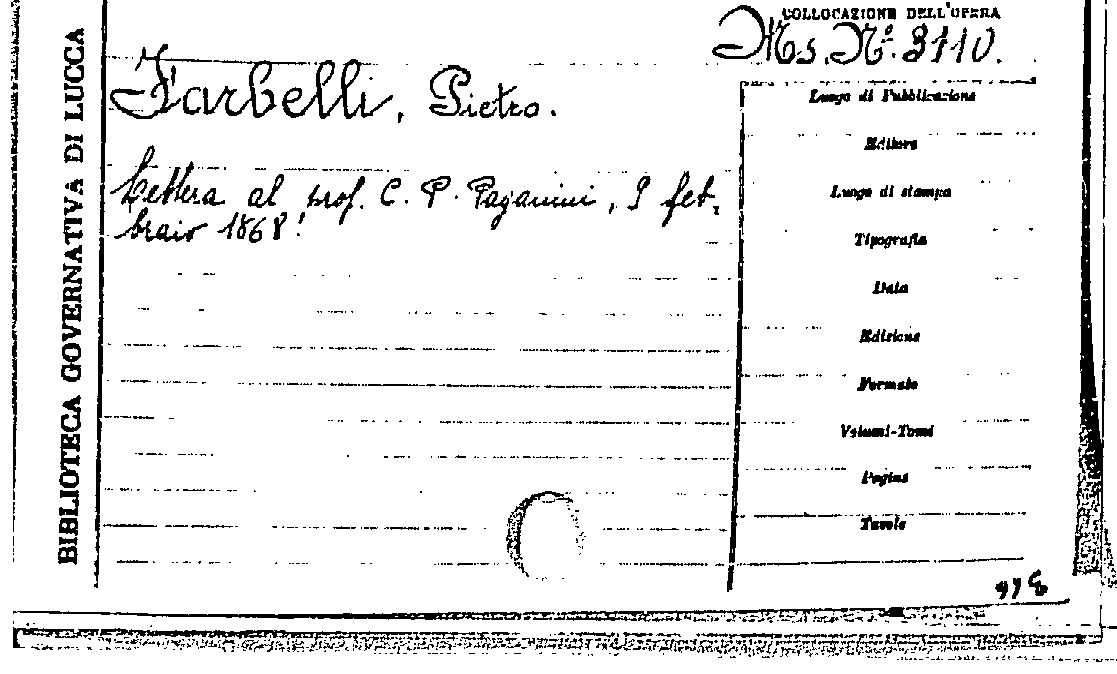 COLLOCAZIONE DELL'OPERA
Ms. Nº. 3110.
BIBLIOTECA GOVERNATIVA DI LUCCA
Farbelli, Pietro.
Lettera al prof. C. P. Paganini, 9 feb-
braio 1868.
Luogo di Pubblicazione
Editore
Luogo di stampa
Tipografia
Data
Edizione
Formato
Volumi-Tomi
Pagine
Tavole